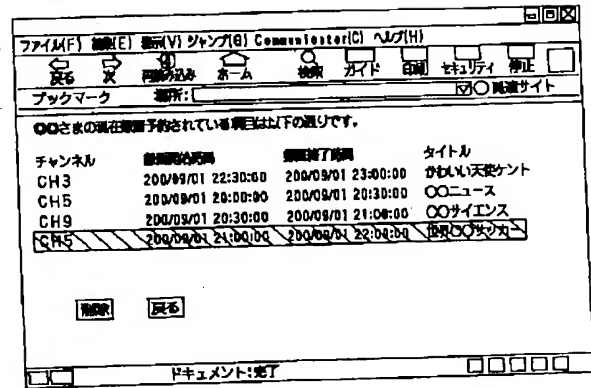 ファイル(F) 編集(E) 表示(V) ジャンプ(G) Communicator(C) ヘルプ(H)
戻る 次 再読み込み ホーム 検索 ガイド 印刷 セキュリティ 停止
ブックマーク 場所: 関連サイト
〇〇さまの現在録画予約されている項目は以下の通りです。
チャンネル 録画開始時間 録画終了時間 タイトル
CH3 200/09/01 22:30:00 200/09/01 23:00:00 かわいい天使ケント
CH5 200/09/01 20:00:00 200/09/01 20:30:00 〇〇ニュース
CH9 200/09/01 20:30:00 200/09/01 21:00:00 〇〇サイエンス
CH5 200/09/01 21:00:00 200/09/01 22:00:00 世界〇〇サッカー
削除 戻る
ドキュメント:完了